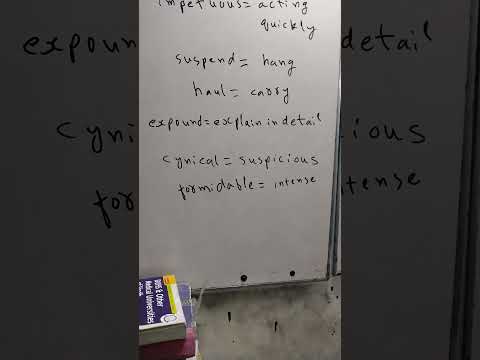 impetuous = acting
quickly
suspend = hang
haul = carry
expound = explain in detail
cynical = suspicious
formidable = intense
& Other
Medical Universities